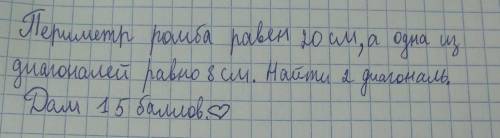 Периметр ромба равен 20 см, а одна из
диагоналей равно 8 см. Найти 2 диагональ.
Дам 15 баллов.♡